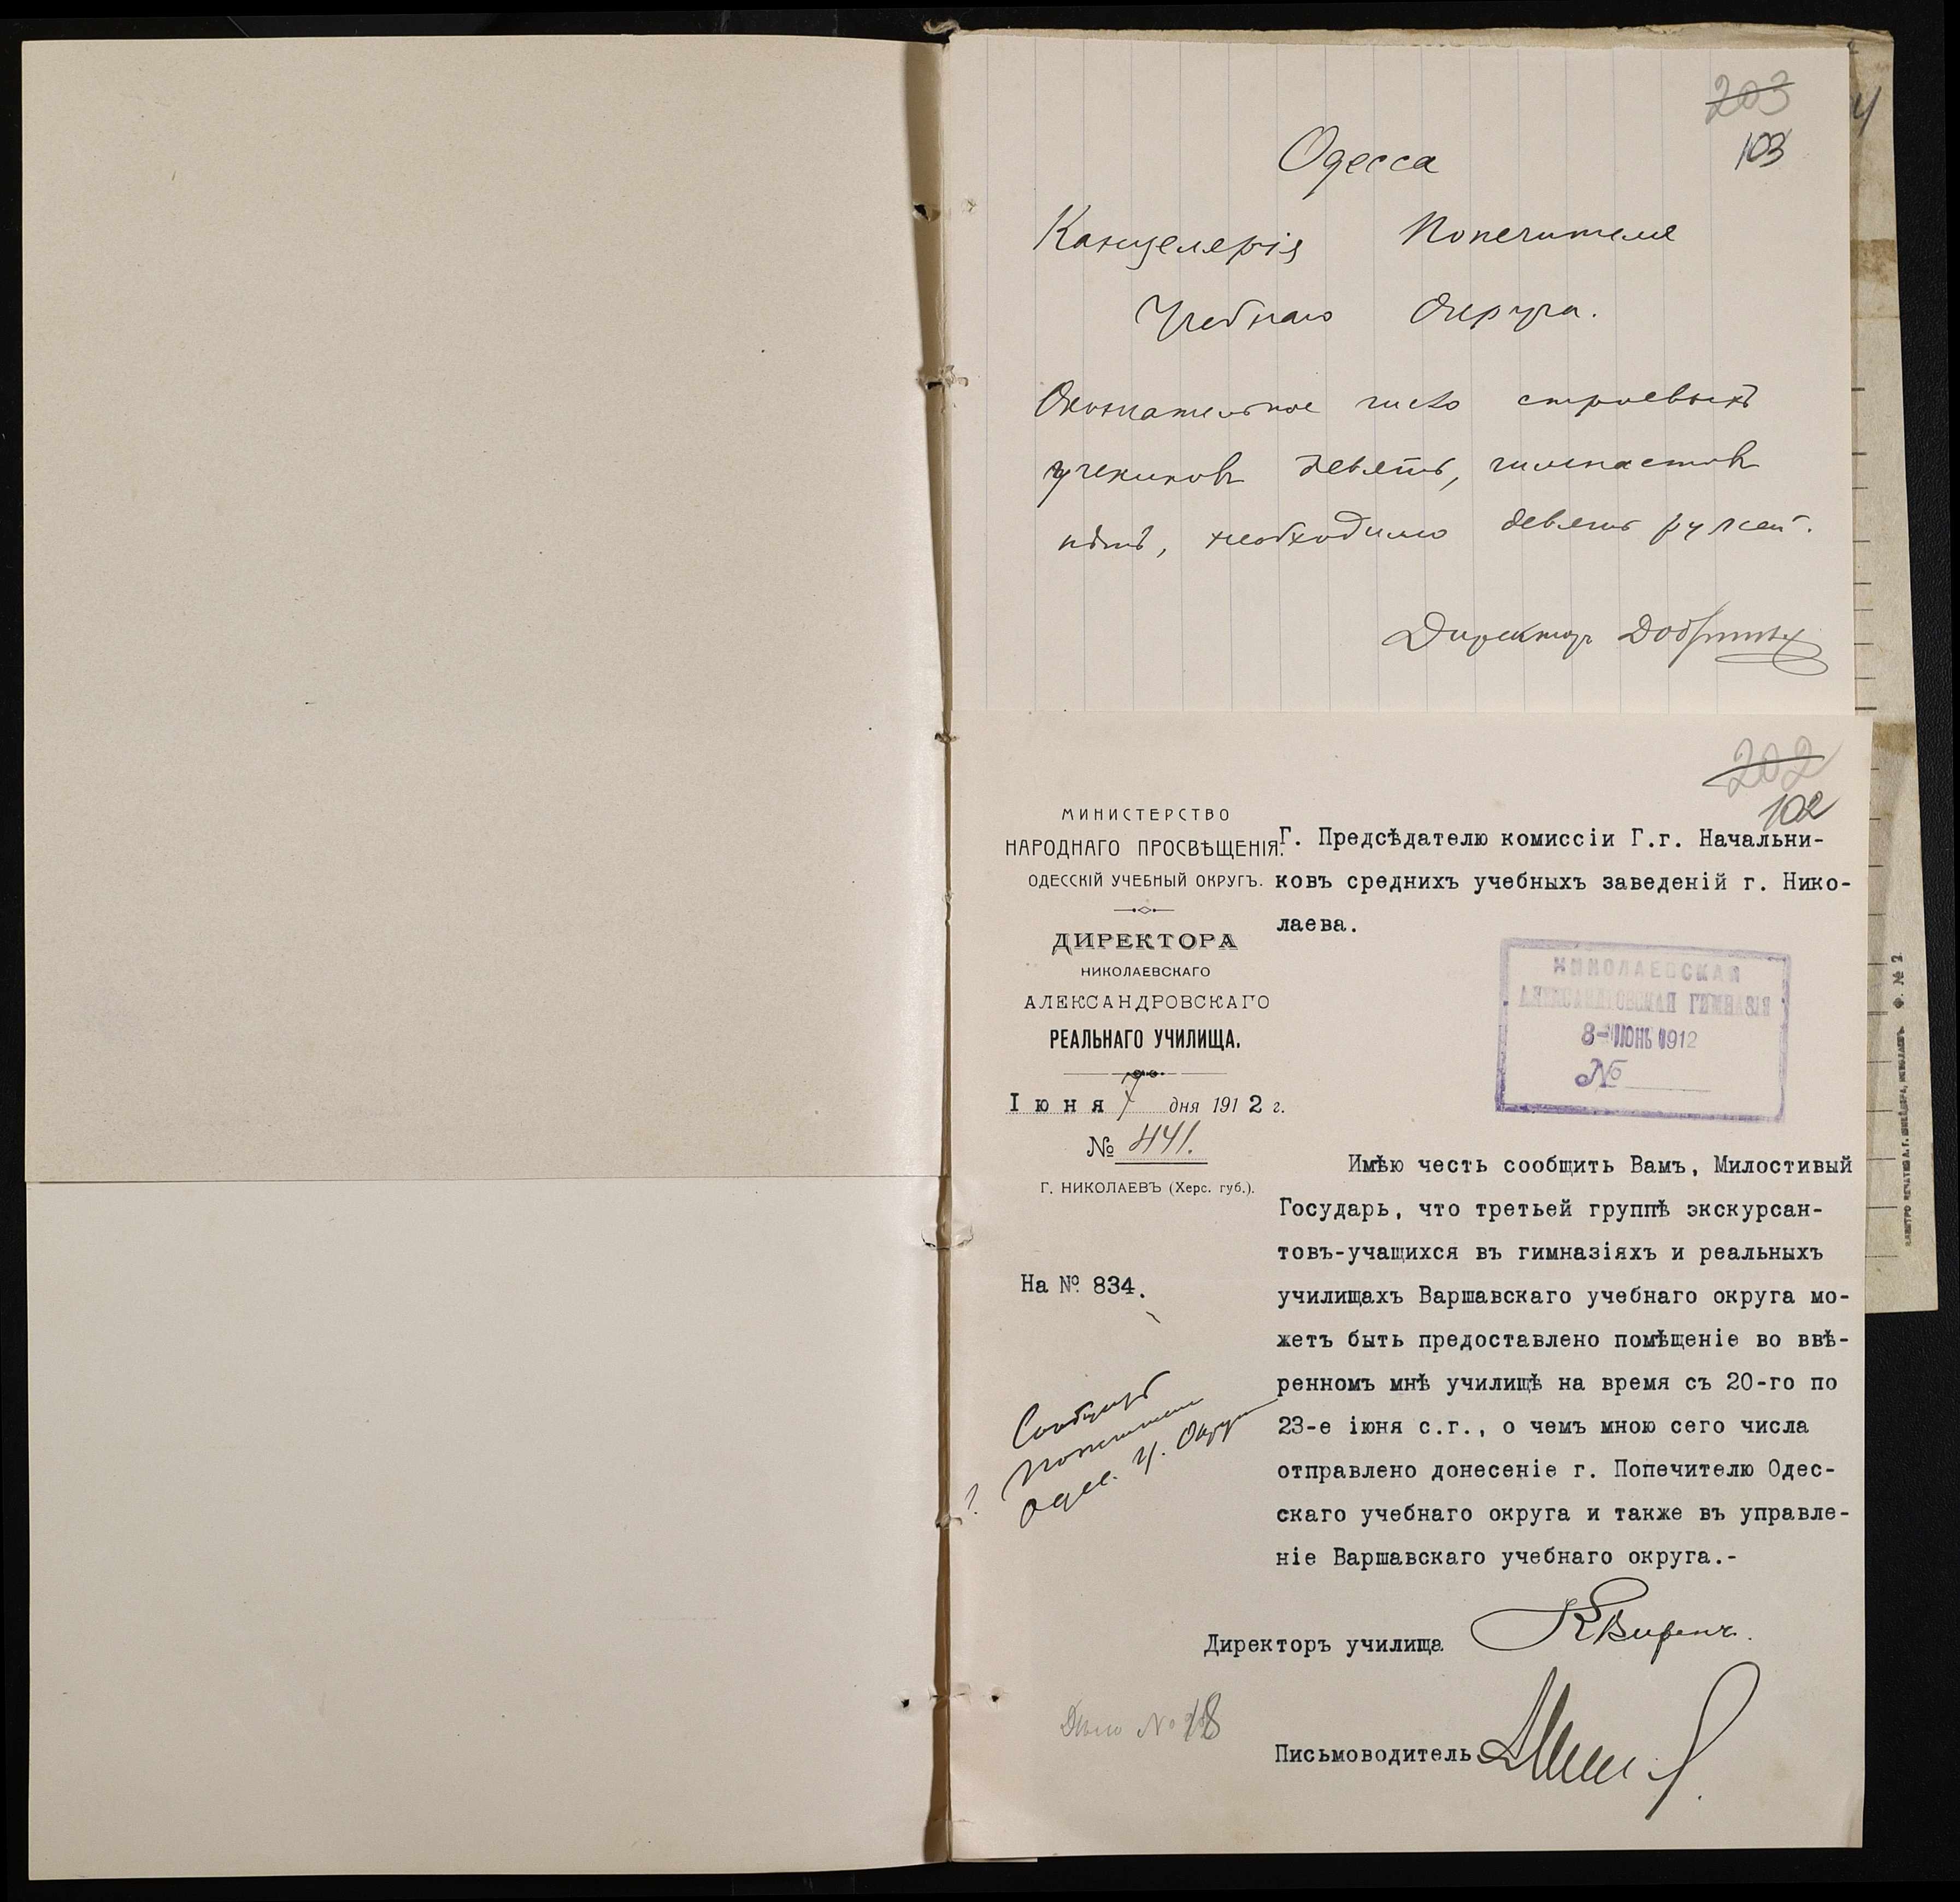 203
103
Одесса
Канцелярія Попечителя
Учебнаго Округа.
Окончательное число строевыхъ
учениковъ девять, гимнастовъ
нѣтъ, необходимо девять ружей.
Директоръ
202
102
МИНИСТЕРСТВО
НАРОДНАГО ПРОСВѢЩЕНІЯ.
ОДЕССКІЙ УЧЕБНЫЙ ОКРУГЪ.
ДИРЕКТОРА
НИКОЛАЕВСКАГО
АЛЕКСАНДРОВСКАГО
РЕАЛЬНАГО УЧИЛИЩА.
Іюня 7 дня 1912 г.
№ 441.
Г. НИКОЛАЕВЪ (Херс. губ.).
На № 834.
Г. Предсѣдателю комиссіи Г.г. Начальни-
ковъ среднихъ учебныхъ заведеній г. Нико-
лаева.
НИКОЛАЕВСКАЯ
АЛЕКСАНДРОВСКАЯ ГИМНАЗІЯ
8-ІЮНЬ 1912
№
Имѣю честь сообщить Вамъ, Милостивый
Государь, что третьей группѣ экскурсан-
товъ-учащихся въ гимназіяхъ и реальныхъ
училищахъ Варшавскаго учебнаго округа мо-
жетъ быть предоставлено помѣщеніе во ввѣ-
ренномъ мнѣ училищѣ на время съ 20-го по
23-е іюня с.г., о чемъ мною сего числа
отправлено донесеніе г. Попечителю Одес-
скаго учебнаго округа и также въ управле-
ніе Варшавскаго учебнаго округа.-
Сообщить
Попечителю
Одес. У. Округа
?
Директоръ училища
Дѣло № 18
Письмоводитель
Ф. № 2.